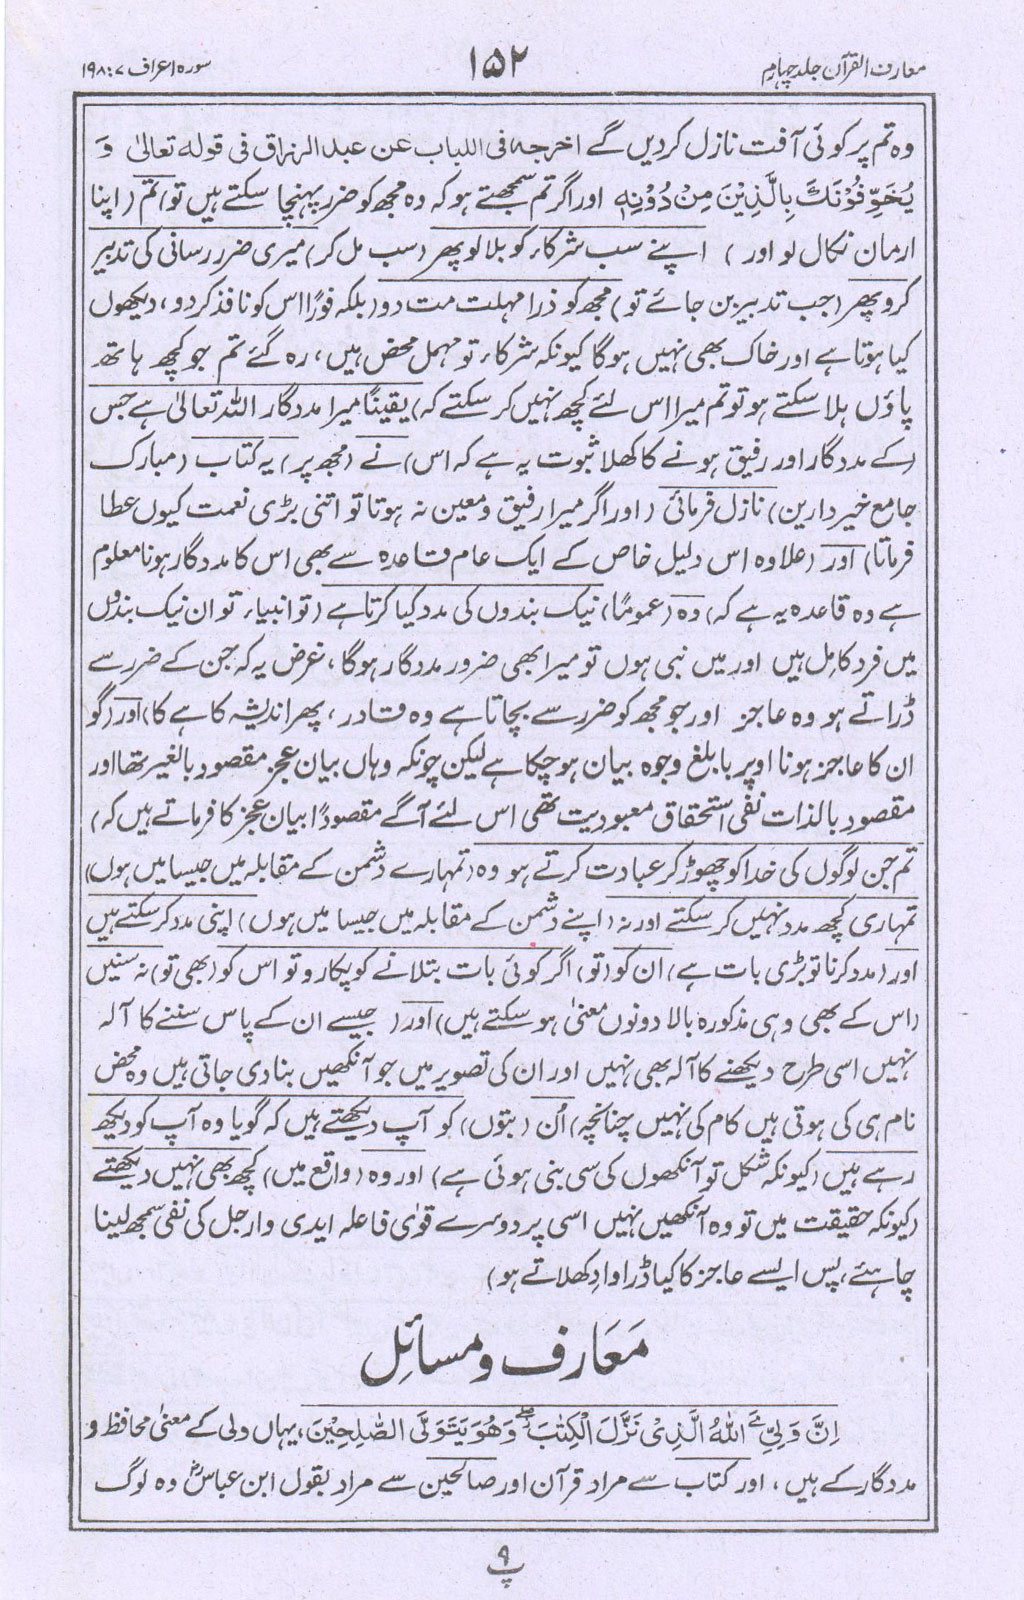 معارف القرآن جلد چہارم
۱۵۲
سورہ اعراف ۷: ۱۹۸
وہ تم پر کوئی آفت نازل کر دیں گے اخرجہ فی اللباب عن عبد الرزاق فی قولہ تعالیٰ وَ
یُخَوِّفُوْنَکَ بِالَّذِیْنَ مِنْ دُوْنِہٖ اور اگر تم سمجھتے ہو کہ وہ مجھ کو ضرر پہنچا سکتے ہیں تو تم (اپنا
ارمان نکال لو اور) اپنے سب شرکاء کو بلا لو پھر (سب مل کر) میری ضرر رسانی کی تدبیر
کرو پھر (جب تدبیر بن جائے تو) مجھ کو ذرا مہلت مت دو (بلکہ فورًا اس کو نافذ کر دو، دیکھوں
کیا ہوتا ہے اور خاک بھی نہیں ہوگا کیونکہ شرکاء تو مہمل محض ہیں، رہ گئے تم جو کچھ ہاتھ
پاؤں ہلا سکتے ہو تو تم میرا اس لئے کچھ نہیں کر سکتے کہ) یقینًا میرا مددگار اللہ تعالیٰ ہے جس
(کے مددگار اور رفیق ہونے کا کھلا ثبوت یہ ہے کہ اس) نے (مجھ پر) یہ کتاب (مبارک
جامع خیر دارین) نازل فرمائی (اور اگر میرا رفیق و معین نہ ہوتا تو اتنی بڑی نعمت کیوں عطا
فرماتا) اور (علاوہ اس دلیل خاص کے ایک عام قاعدہ سے بھی اس کا مددگار ہونا معلوم
ہے وہ قاعدہ یہ ہے کہ) وہ (عمومًا) نیک بندوں کی مدد کیا کرتا ہے (تو انبیاء تو ان نیک بندوں
میں فرد کامل ہیں اور میں نبی ہوں تو میرا بھی ضرور مددگار ہوگا، غرض یہ کہ جن کے ضرر سے
ڈراتے ہو وہ عاجز اور جو مجھ کو ضرر سے بچاتا ہے وہ قادر، پھر اندیشہ کاہے کا) اور (گو
ان کا عاجز ہونا اوپر بابلغ وجوہ بیان ہو چکا ہے لیکن چونکہ وہاں بیان عجز مقصود بالغیر تھا اور
مقصود بالذات نفی استحقاق معبودیت تھی اس لئے آگے مقصودًا بیان عجز کا فرماتے ہیں کہ)
تم جن لوگوں کی خدا کو چھوڑ کر عبادت کرتے ہو وہ (تمہارے دشمن کے مقابلہ میں جیسا میں ہوں)
تمہاری کچھ مدد نہیں کر سکتے اور نہ (اپنے دشمن کے مقابلہ میں جیسا میں ہوں) اپنی مدد کر سکتے ہیں
اور (مدد کرنا تو بڑی بات ہے) ان کو (تو) اگر کوئی بات بتلانے کو پکارو تو اس کو (بھی تو) نہ سنیں
(اس کے بھی وہی مذکورہ بالا دونوں معنیٰ ہو سکتے ہیں) اور (جیسے ان کے پاس سننے کا آلہ
نہیں اسی طرح دیکھنے کا آلہ بھی نہیں اور ان کی تصویر میں جو آنکھیں بنا دی جاتی ہیں وہ محض
نام ہی کی ہوتی ہیں کام کی نہیں چنانچہ) اُن (بتوں) کو آپ دیکھتے ہیں کہ گویا وہ آپ کو دیکھ
رہے ہیں (کیونکہ شکل تو آنکھوں کی سی بنی ہوئی ہے) اور وہ (واقع میں) کچھ بھی نہیں دیکھتے
(کیونکہ حقیقت میں تو وہ آنکھیں نہیں اسی پر دوسرے قوٰی فاعلہ ایدی و ارجل کی نفی سمجھ لینا
چاہئے، پس ایسے عاجز کا کیا ڈراوا دکھلاتے ہو)
مَعَارف و مسائِل
اِنَّ وَلِیِّۦَ اللّٰہُ الَّذِیْ نَزَّلَ الْکِتٰبَ وَھُوَ یَتَوَلَّی الصّٰلِحِیْنَ، یہاں ولی کے معنیٰ محافظ و
مددگار کے ہیں، اور کتاب سے مراد قرآن اور صالحین سے مراد بقول ابن عباسؓ وہ لوگ
پ ۹